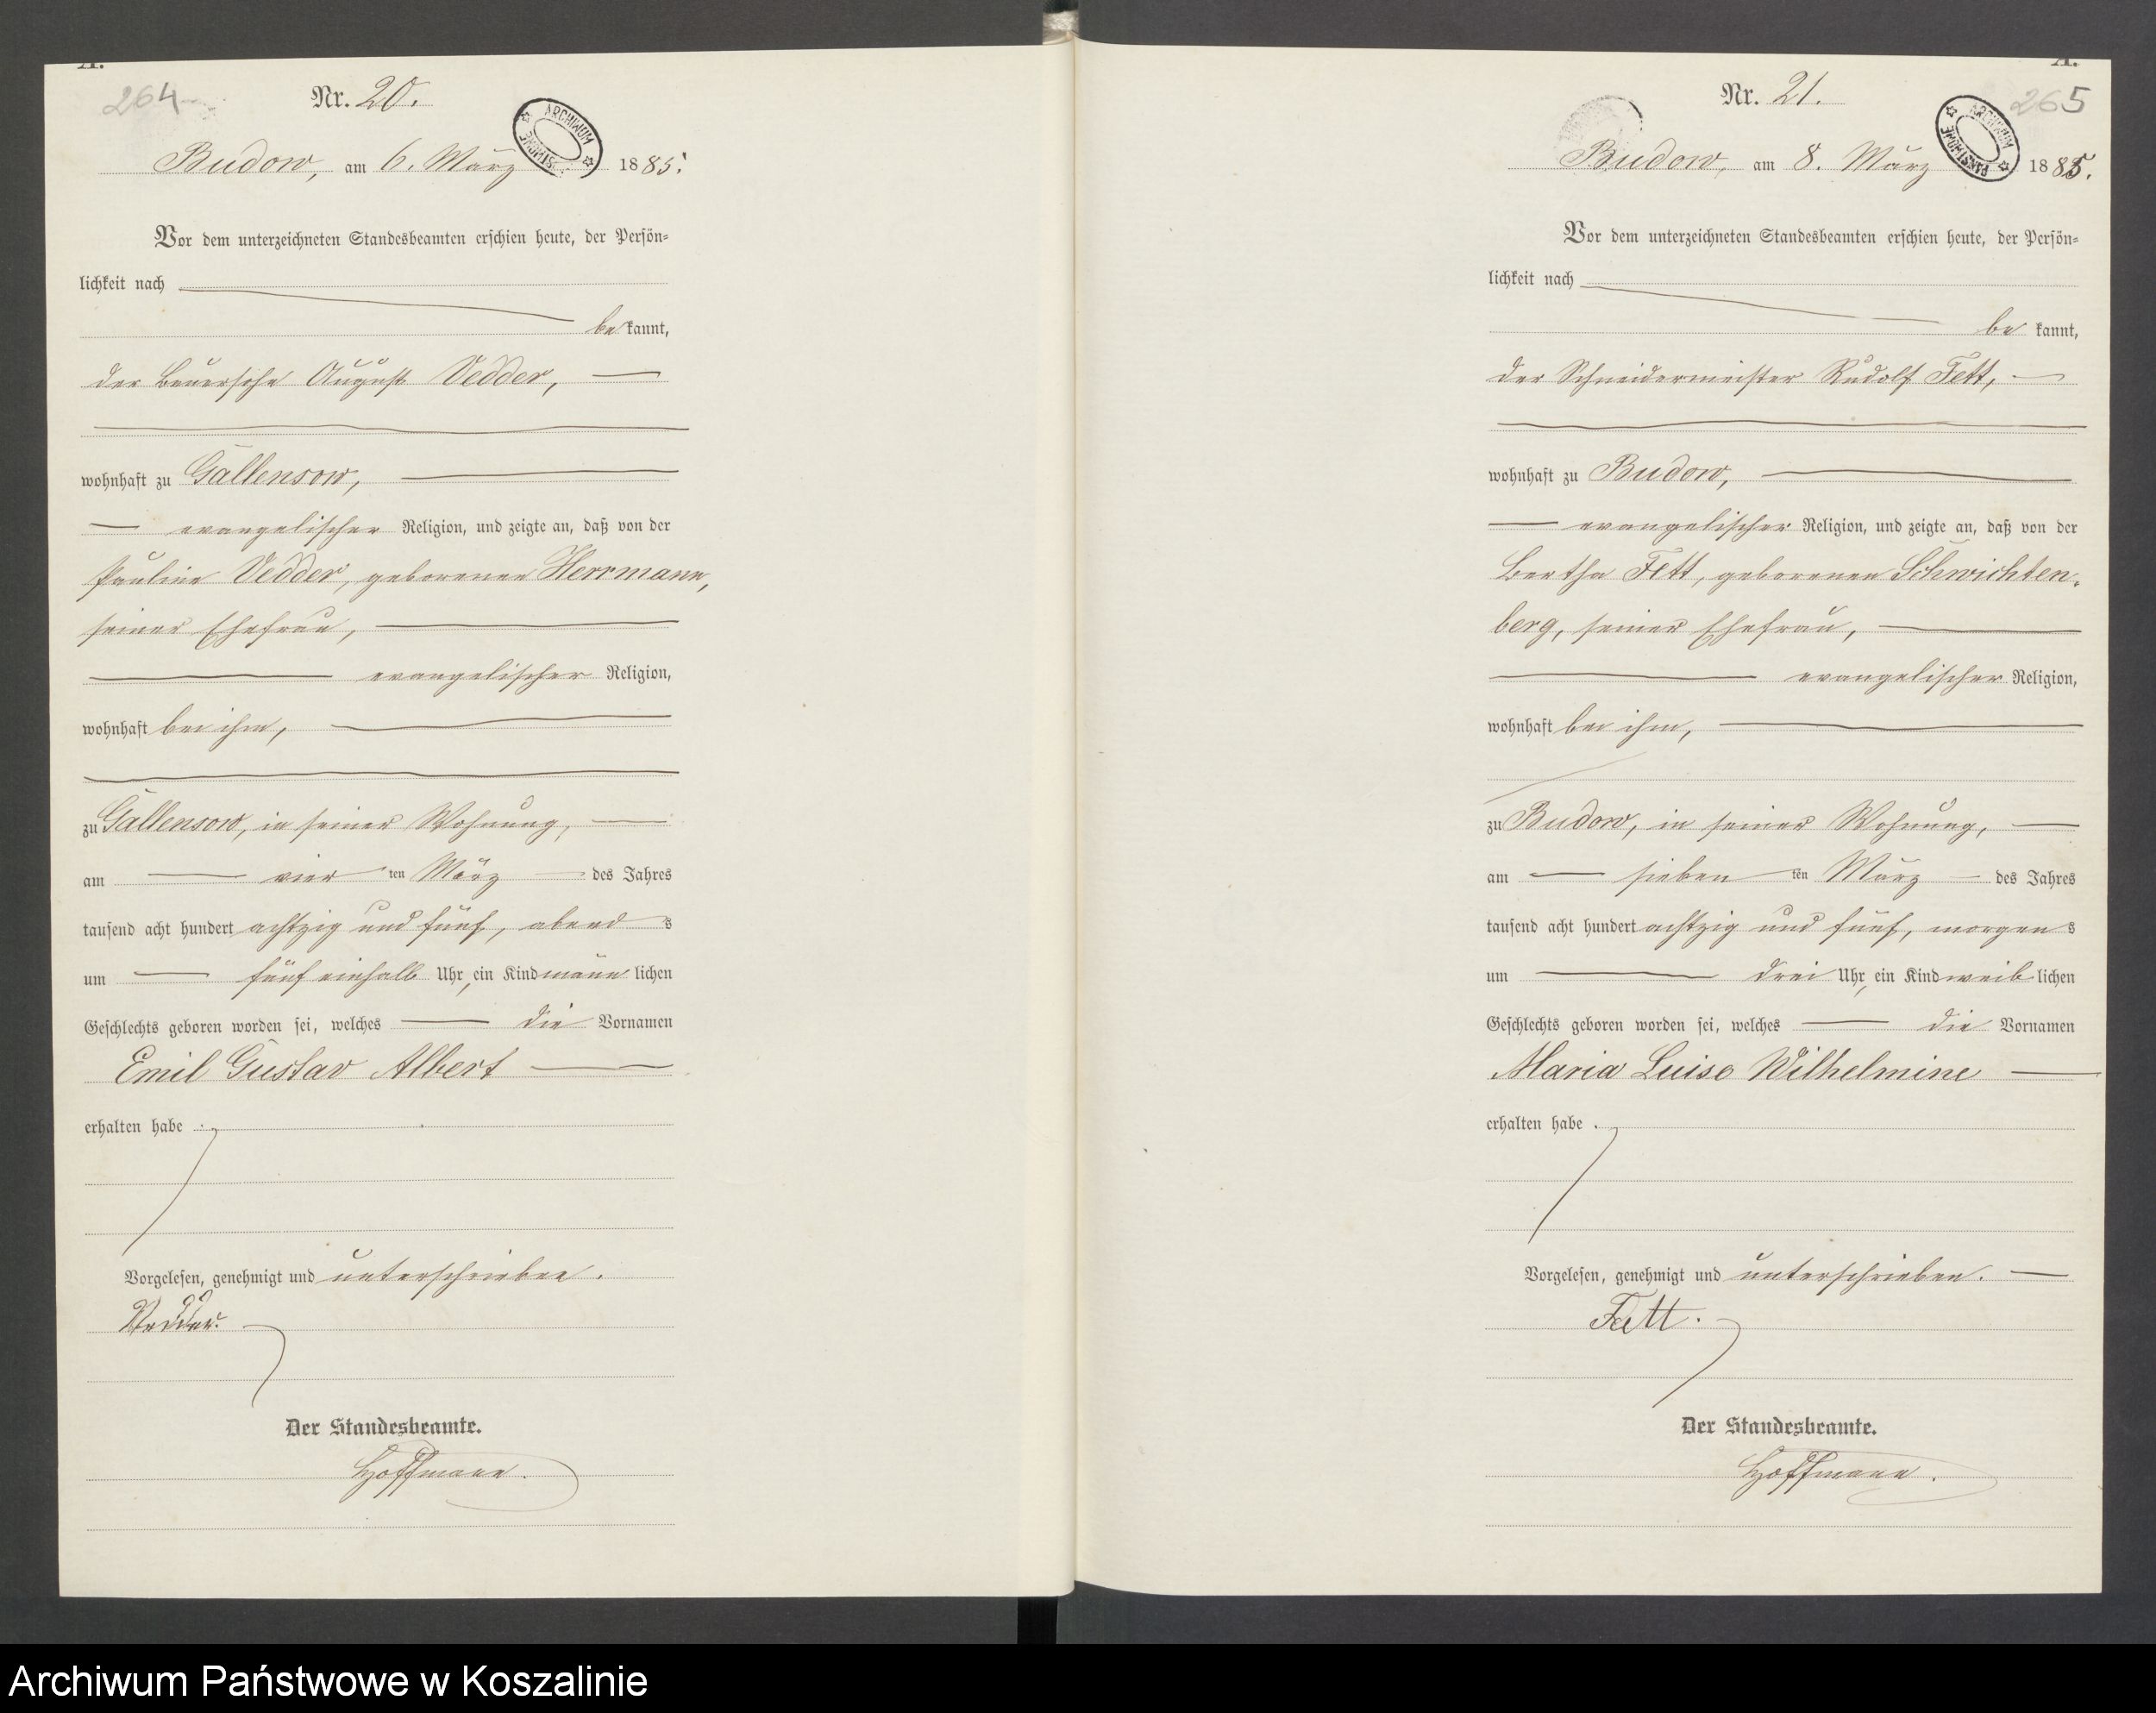 A.
264
Nr. 20.
Budow, am 6. März 1885.
ARCHIWUM PAŃSTWOWE
Vor dem unterzeichneten Standesbeamten erschien heute, der Persön=
lichkeit nach
be kannt,
der Bauersohn August Vedder,
wohnhaft zu Gallensow,
evangelischer Religion, und zeigte an, daß von der
Pauline Vedder, geborenen Herrmann,
seiner Ehefrau,
evangelischer Religion,
wohnhaft bei ihm,
zu Gallensow, in seiner Wohnung,
am vier ten März des Jahres
tausend acht hundert achtzig und fünf, abend s
um fünf einhalb Uhr, ein Kind männ lichen
Geschlechts geboren worden sei, welches die Vornamen
Emil Gustav Albert
erhalten habe .
Vorgelesen, genehmigt und unterschrieben.
Vedder.
Der Standesbeamte.
Hoffmann.
A.
265
Nr. 21.
Budow, am 8. März 1885.
ARCHIWUM PAŃSTWOWE
Vor dem unterzeichneten Standesbeamten erschien heute, der Persön=
lichkeit nach
be kannt,
der Schneidermeister Rudolf Fett,
wohnhaft zu Budow,
evangelischer Religion, und zeigte an, daß von der
Bertha Fett, geborenen Schwichten-
berg, seiner Ehefrau,
evangelischer Religion,
wohnhaft bei ihm,
zu Budow, in seiner Wohnung,
am sieben ten März des Jahres
tausend acht hundert achtzig und fünf, morgen s
um drei Uhr, ein Kind weib lichen
Geschlechts geboren worden sei, welches die Vornamen
Maria Luise Wilhelmine
erhalten habe .
Vorgelesen, genehmigt und unterschrieben.
Fett.
Der Standesbeamte.
Hoffmann.
Archiwum Państwowe w Koszalinie